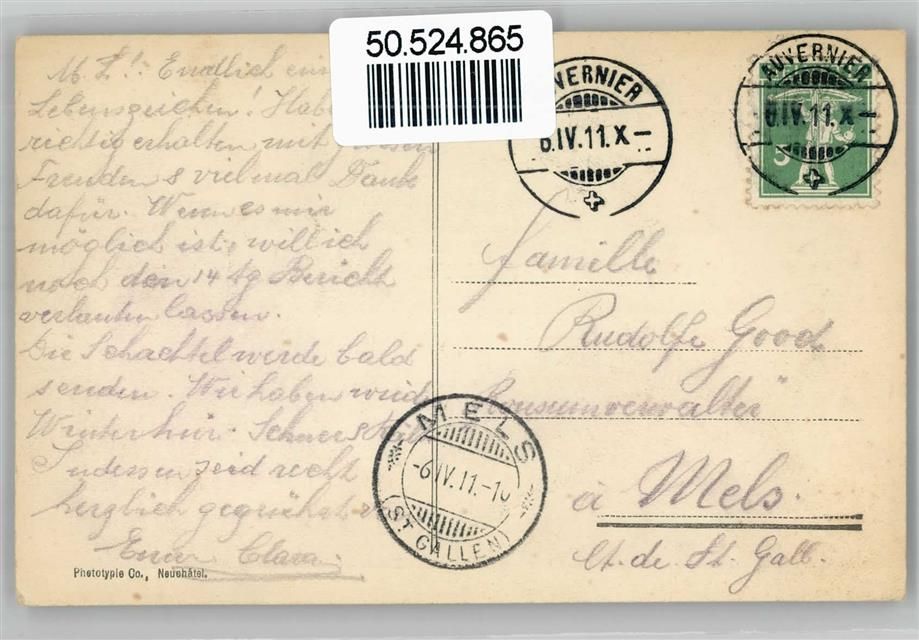 50.524.865
M. L! Endlich ein
Lebenszeichen! Habe
richtig erhalten mit
Freuden & vielmal Dank
dafür. Wenn es mir
möglich ist, will ich
noch den 14 tg Bericht
verlauten lassen.
Die Schachtel werde bald
senden. Wir haben wied
Winter hier. Schnee &
Indessen seid recht
herzlich gegrüsst v.
Eurer Clara.
Phototypie Co., Neuchâtel.
AUVERNIER
6.IV.11.X–
AUVERNIER
6.IV.11.X–
5
Famille
Rudolfe Good
"Consumverwalter"
à Mels.
Ct. de St. Gall.
MELS
-6.IV.11.-10
(ST. GALLEN)